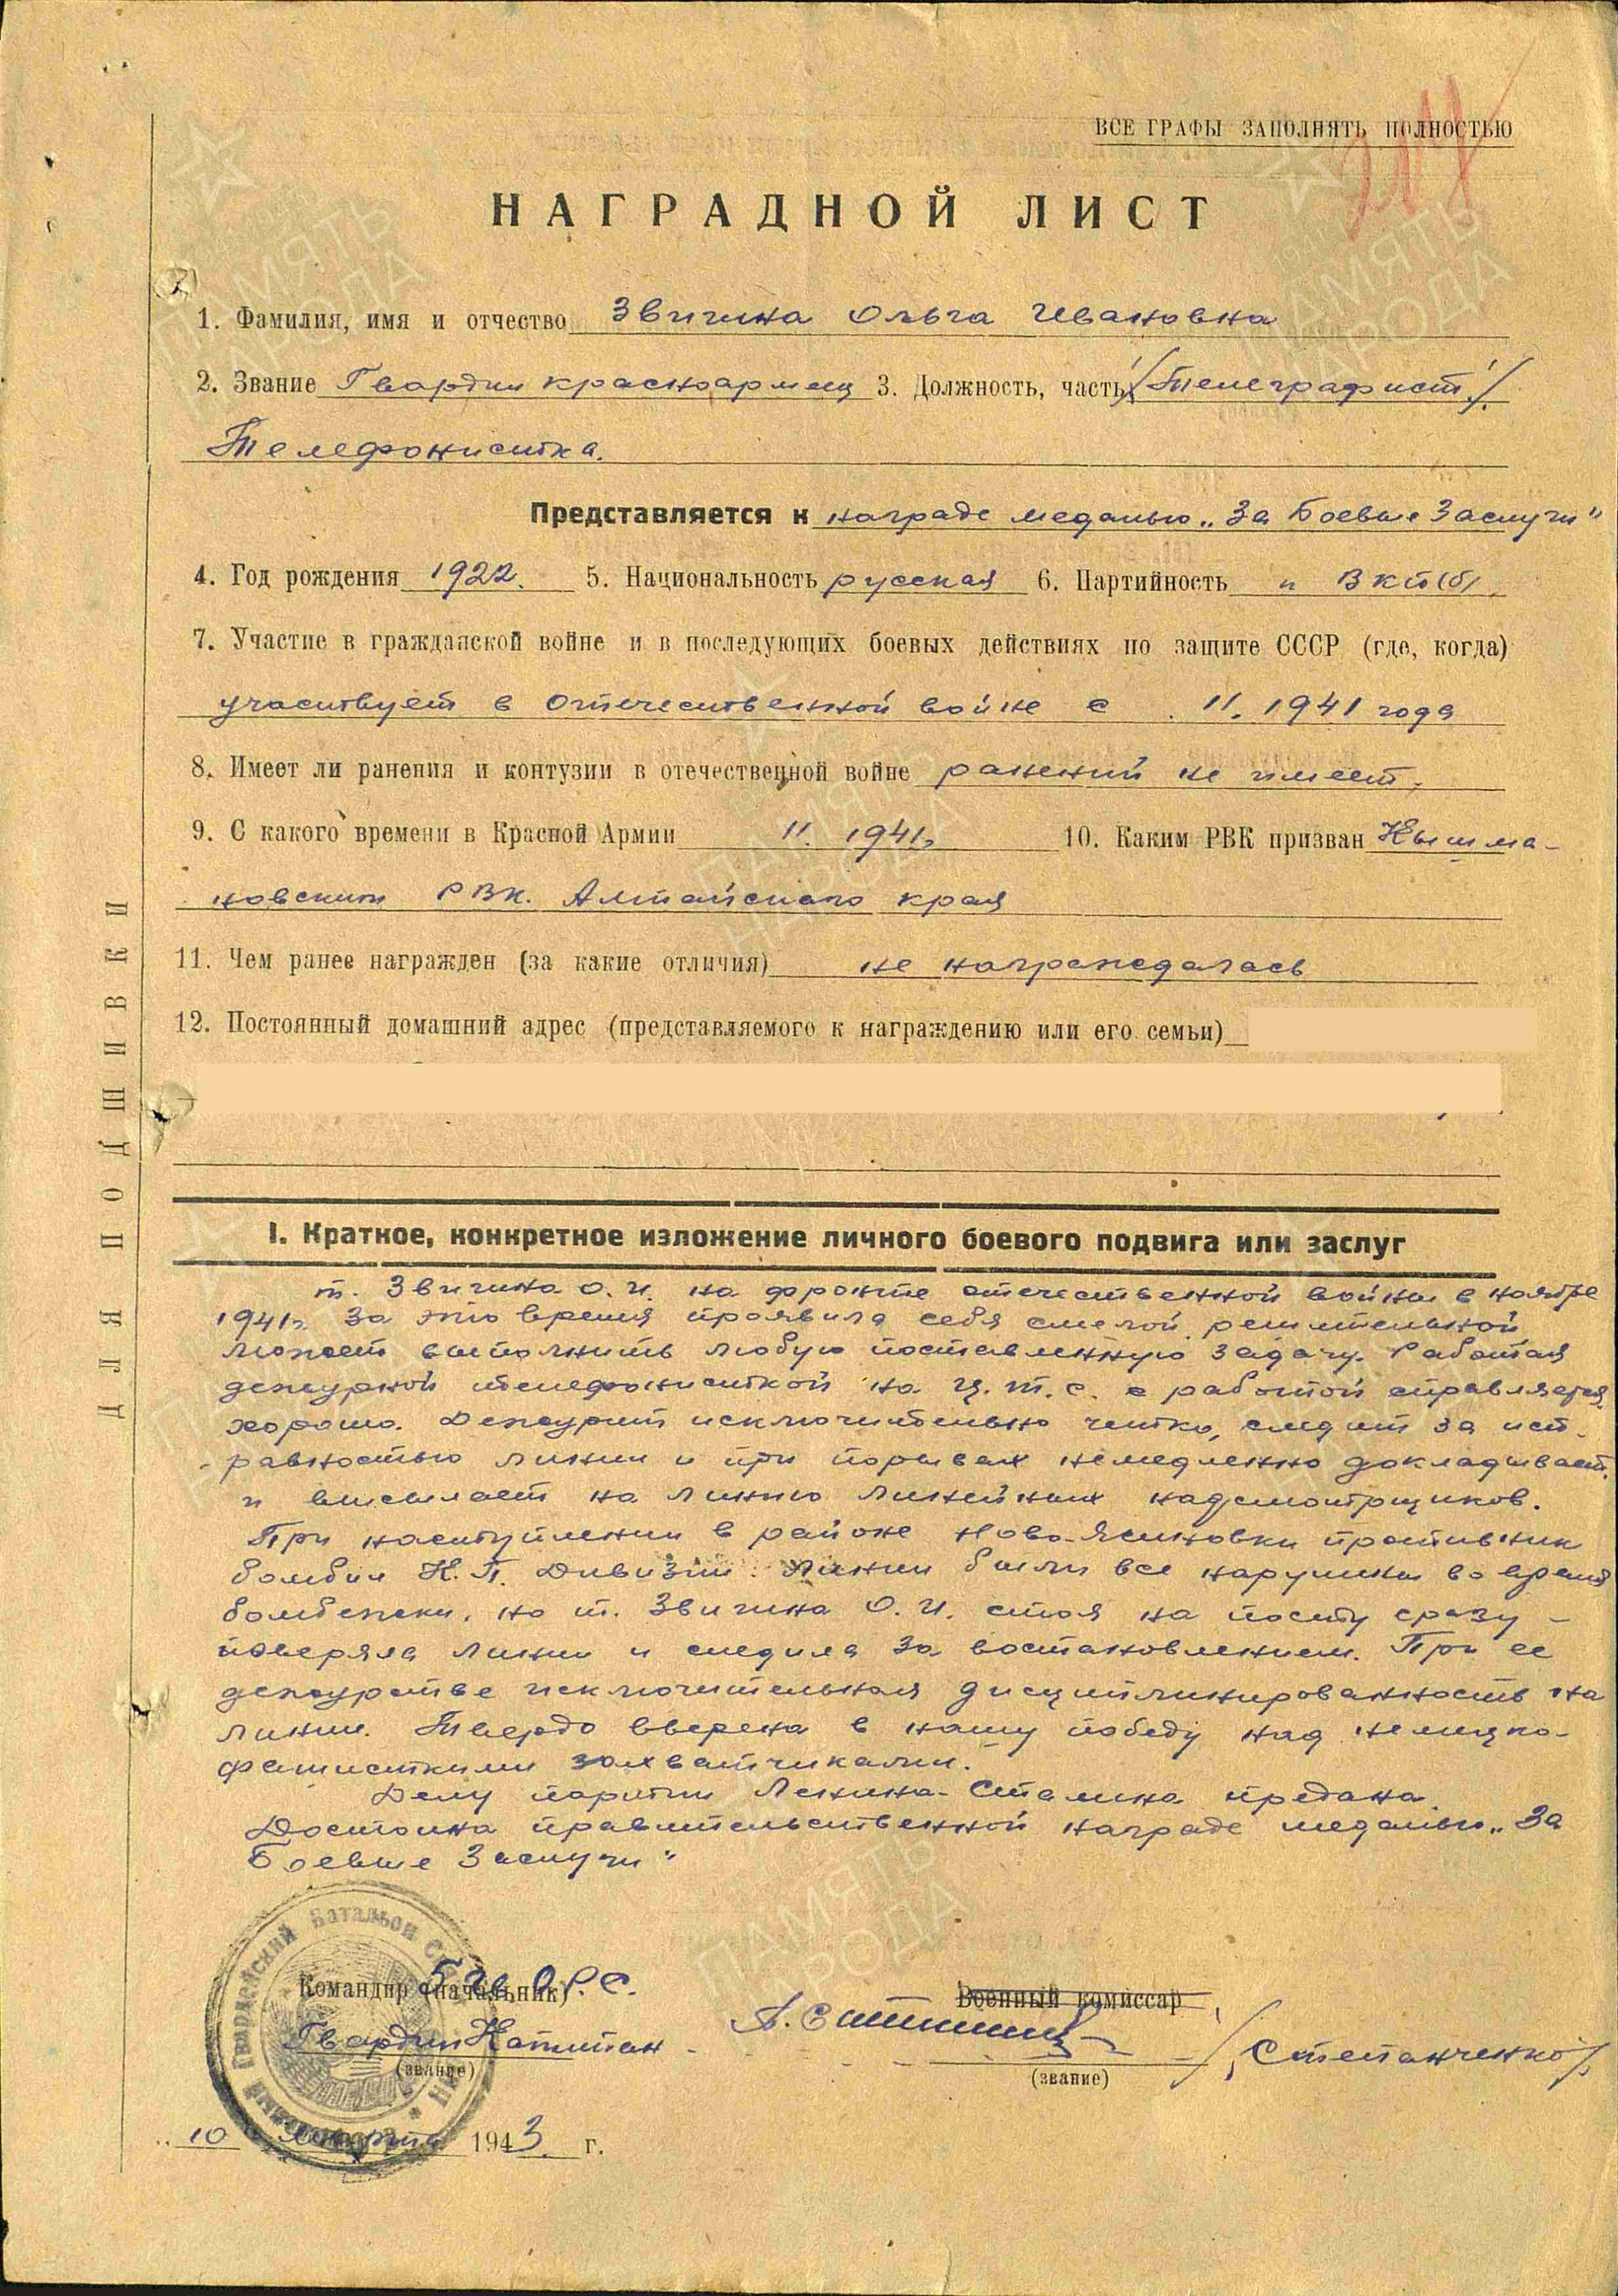 ВСЕ ГРАФЫ ЗАПОЛНЯТЬ ПОЛНОСТЬЮ
НАГРАДНОЙ ЛИСТ
1. Фамилия, имя и отчество Звигина Ольга Ивановна
2. Звание Гвардии красноармеец 3. Должность, часть /Телеграфист/.
Телефонистка.
Представляется к награде медалью „За Боевые Заслуги"
4. Год рождения 1922. 5. Национальность русская 6. Партийность ВКП(б)
7. Участие в гражданской войне и в последующих боевых действиях по защите СССР (где, когда)
участвует в Отечественной войне с 11. 1941 года
8. Имеет ли ранения и контузии в отечественной войне ранений не имеет.
9. С какого времени в Красной Армии 11. 1941г. 10. Каким РВК призван Кышма-
новским РВК. Алтайского края
11. Чем ранее награжден (за какие отличия) не награждалась
12. Постоянный домашний адрес (представляемого к награждению или его семьи)
ДЛЯ ПОДШИВКИ
I. Краткое, конкретное изложение личного боевого подвига или заслуг
т. Звигина О.И. на фронте отечественной войны с ноября
1941г. За это время проявила себя смелой, решительной
может выполнить любую поставленную задачу. Работая
дежурной телефонисткой на Ц.Т.С. с работой справляется
хорошо. Дежурит исключительно четко, следит за исп-
равностью линии и при порывах немедленно докладывает
и высылает на линию линейных надсмотрщиков.
При наступлении в районе Ново-Ясиновки противник
бомбил К.П. Дивизии. Линии были все нарушены во время
бомбежки, но т. Звигина О.И. стоя на посту сразу
поверяла линии и следила за востановлением. При ее
дежурстве исключительная дисциплинированность на
линии. Твердо вверена в нашу победу над немецко-
фашисткими захватчиками.
Делу партии Ленина-Сталина предана.
Достойна правительственной награде медалью „За
Боевые Заслуги"
Гвардейский Батальон
Командир (начальник) 5 Гв О.Р.С.
Военный комиссар
Гвардии Капитан /Степанченко/
(звание) (звание)
10 1943 г.
ПАМЯТЬ НАРОДА